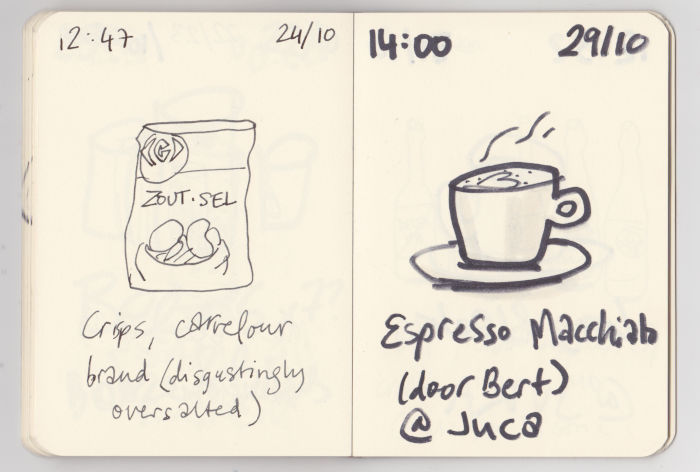 12:47
24/10
ZOUT·SEL
Crisps, carrefour
brand (disgustingly
oversalted)
14:00
29/10
Espresso Macchiato
(door Bert)
@ Juca